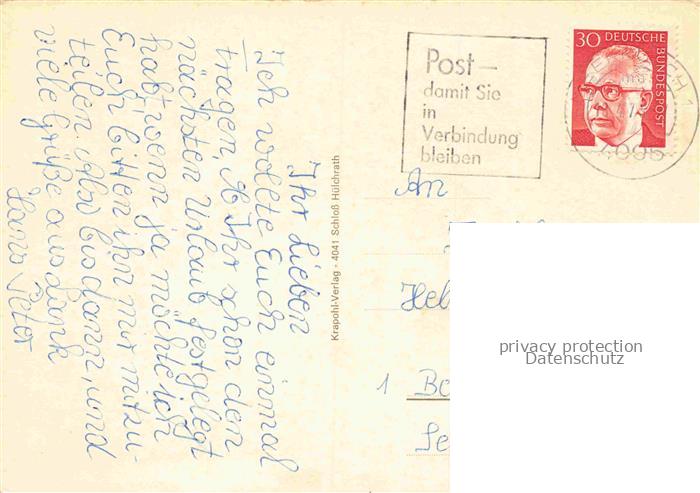 Ihr Lieben
Ich wollte Euch einmal
fragen, ob Ihr schon den
nächsten Urlaub festgelegt
habt, wenn ja möchte ich
Euch bitten ihn mir mitzu-
teilen. Also bis dann, und
viele Grüße aus
Hans Peter
Krapohl-Verlag · 4041 Schloß Hülchrath
Post –
damit Sie
in
Verbindung
bleiben
30 DEUTSCHE
BUNDESPOST
An
Hel
1 Be
Se
privacy protection
Datenschutz